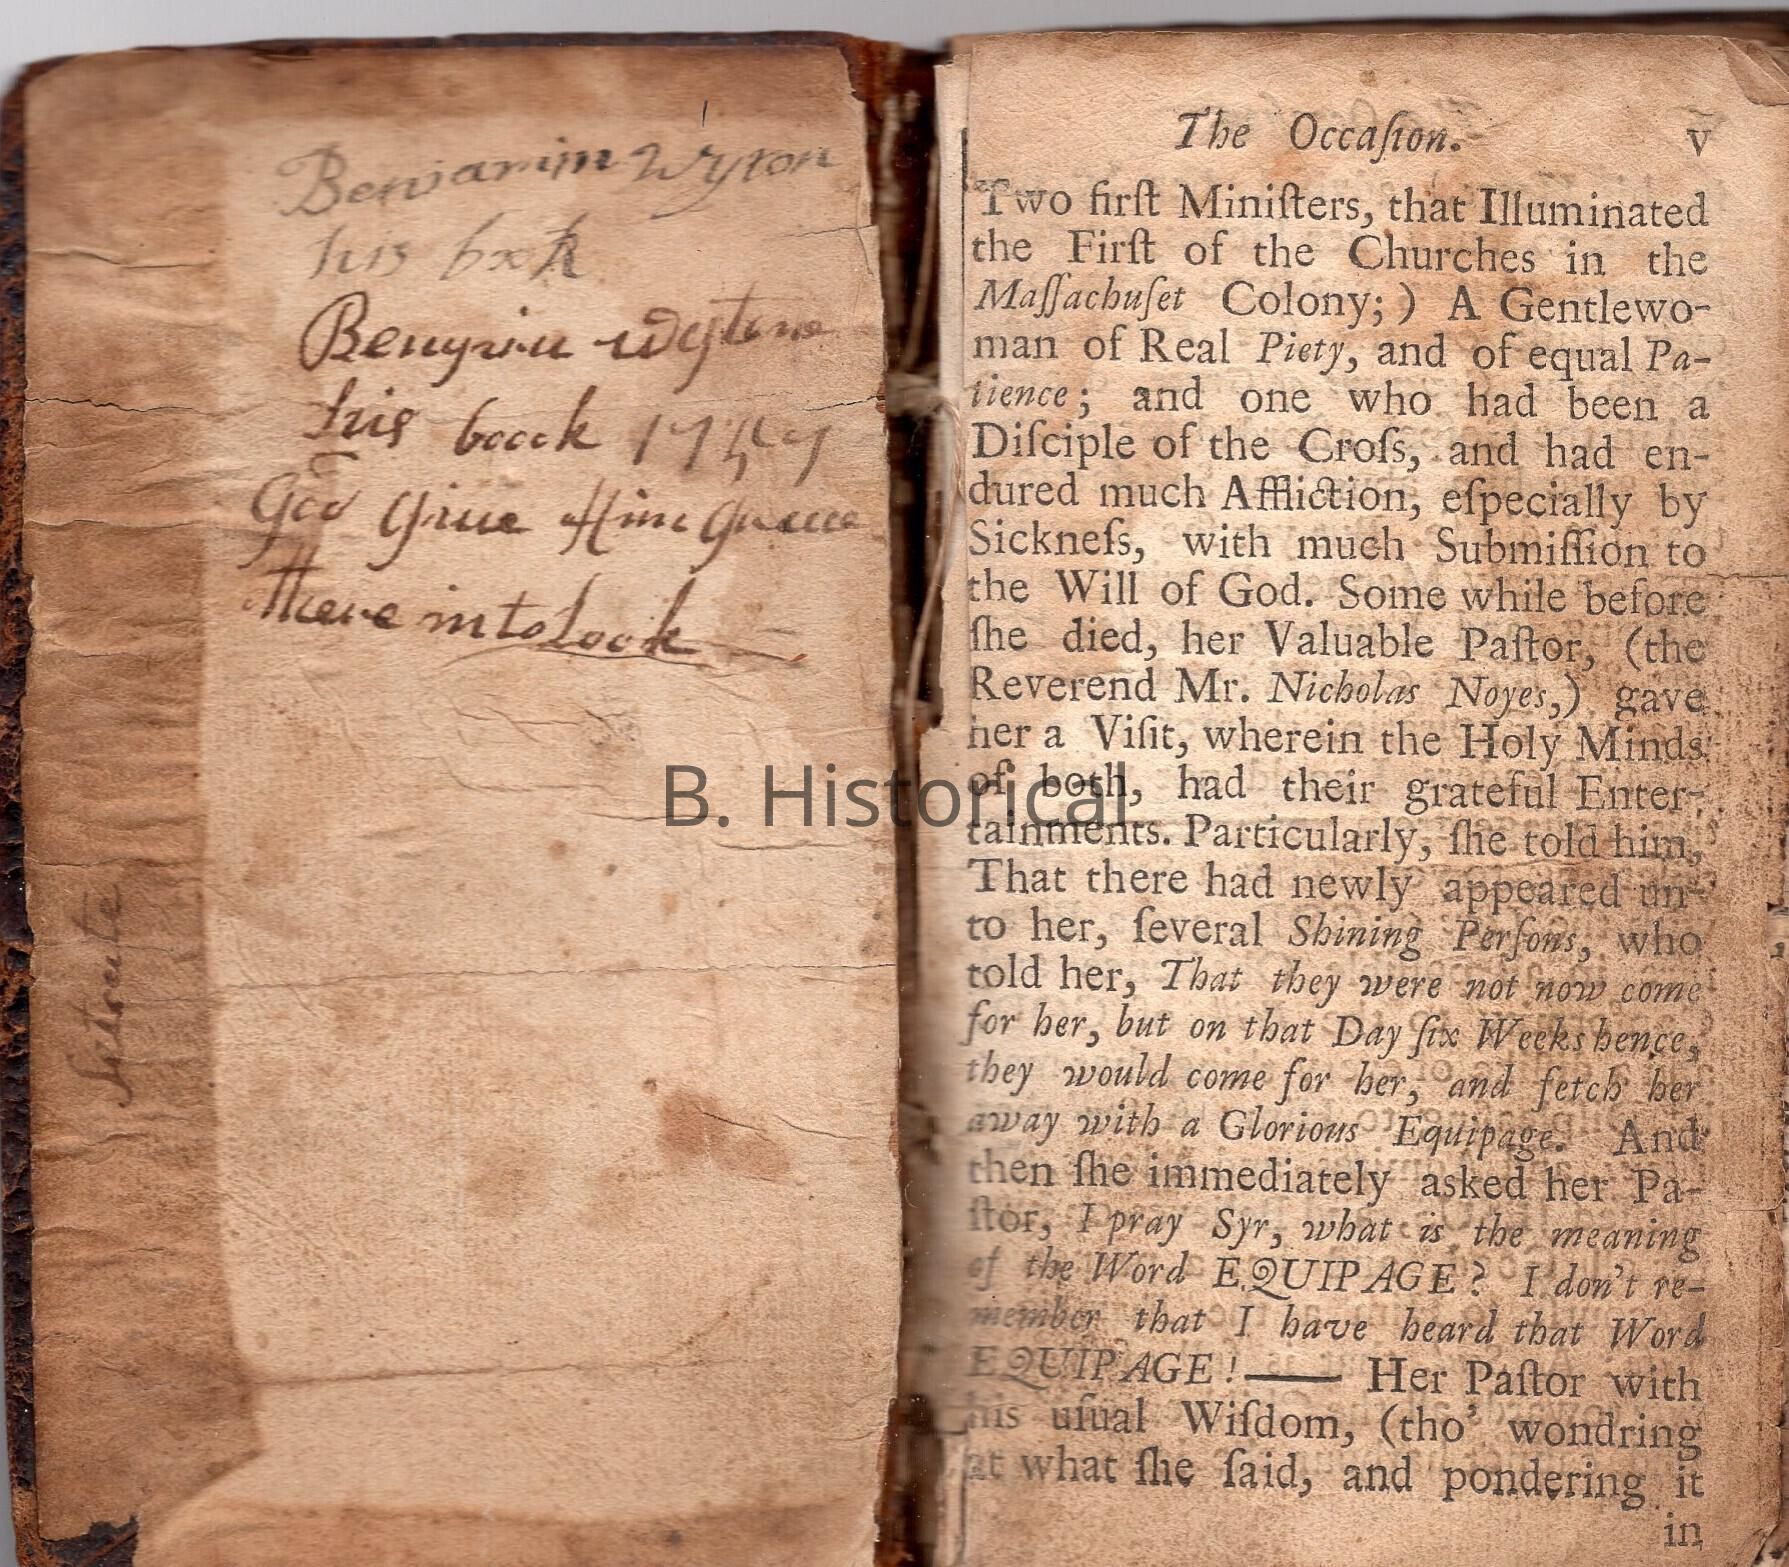 Beniamin
his
his boock
God Giue Him Grace
There in to Look
B. Historical
The Occaſion. v
Two firſt Miniſters, that Illuminated
the Firſt of the Churches in the
Maſſachuſet Colony;) A Gentlewo-
man of Real Piety, and of equal Pa-
tience; and one who had been a
Diſciple of the Croſs, and had en-
dured much Affliction, eſpecially by
Sickneſs, with much Submiſſion to
the Will of God. Some while before
ſhe died, her Valuable Paſtor, (the
Reverend Mr. Nicholas Noyes,) gave
her a Viſit, wherein the Holy Minds
of both, had their grateful Enter-
tainments. Particularly, ſhe told him,
That there had newly appeared un-
to her, ſeveral Shining Perſons, who
told her, That they were not now come
for her, but on that Day ſix Weeks hence,
they would come for her, and fetch her
away with a Glorious Equipage. And
then ſhe immediately asked her Pa-
ſtor, I pray Syr, what is the meaning
of the Word EQUIPAGE? I don't re-
member that I have heard that Word
EQUIPAGE!—— Her Paſtor with
his uſual Wiſdom, (tho' wondring
at what ſhe ſaid, and pondering it
in